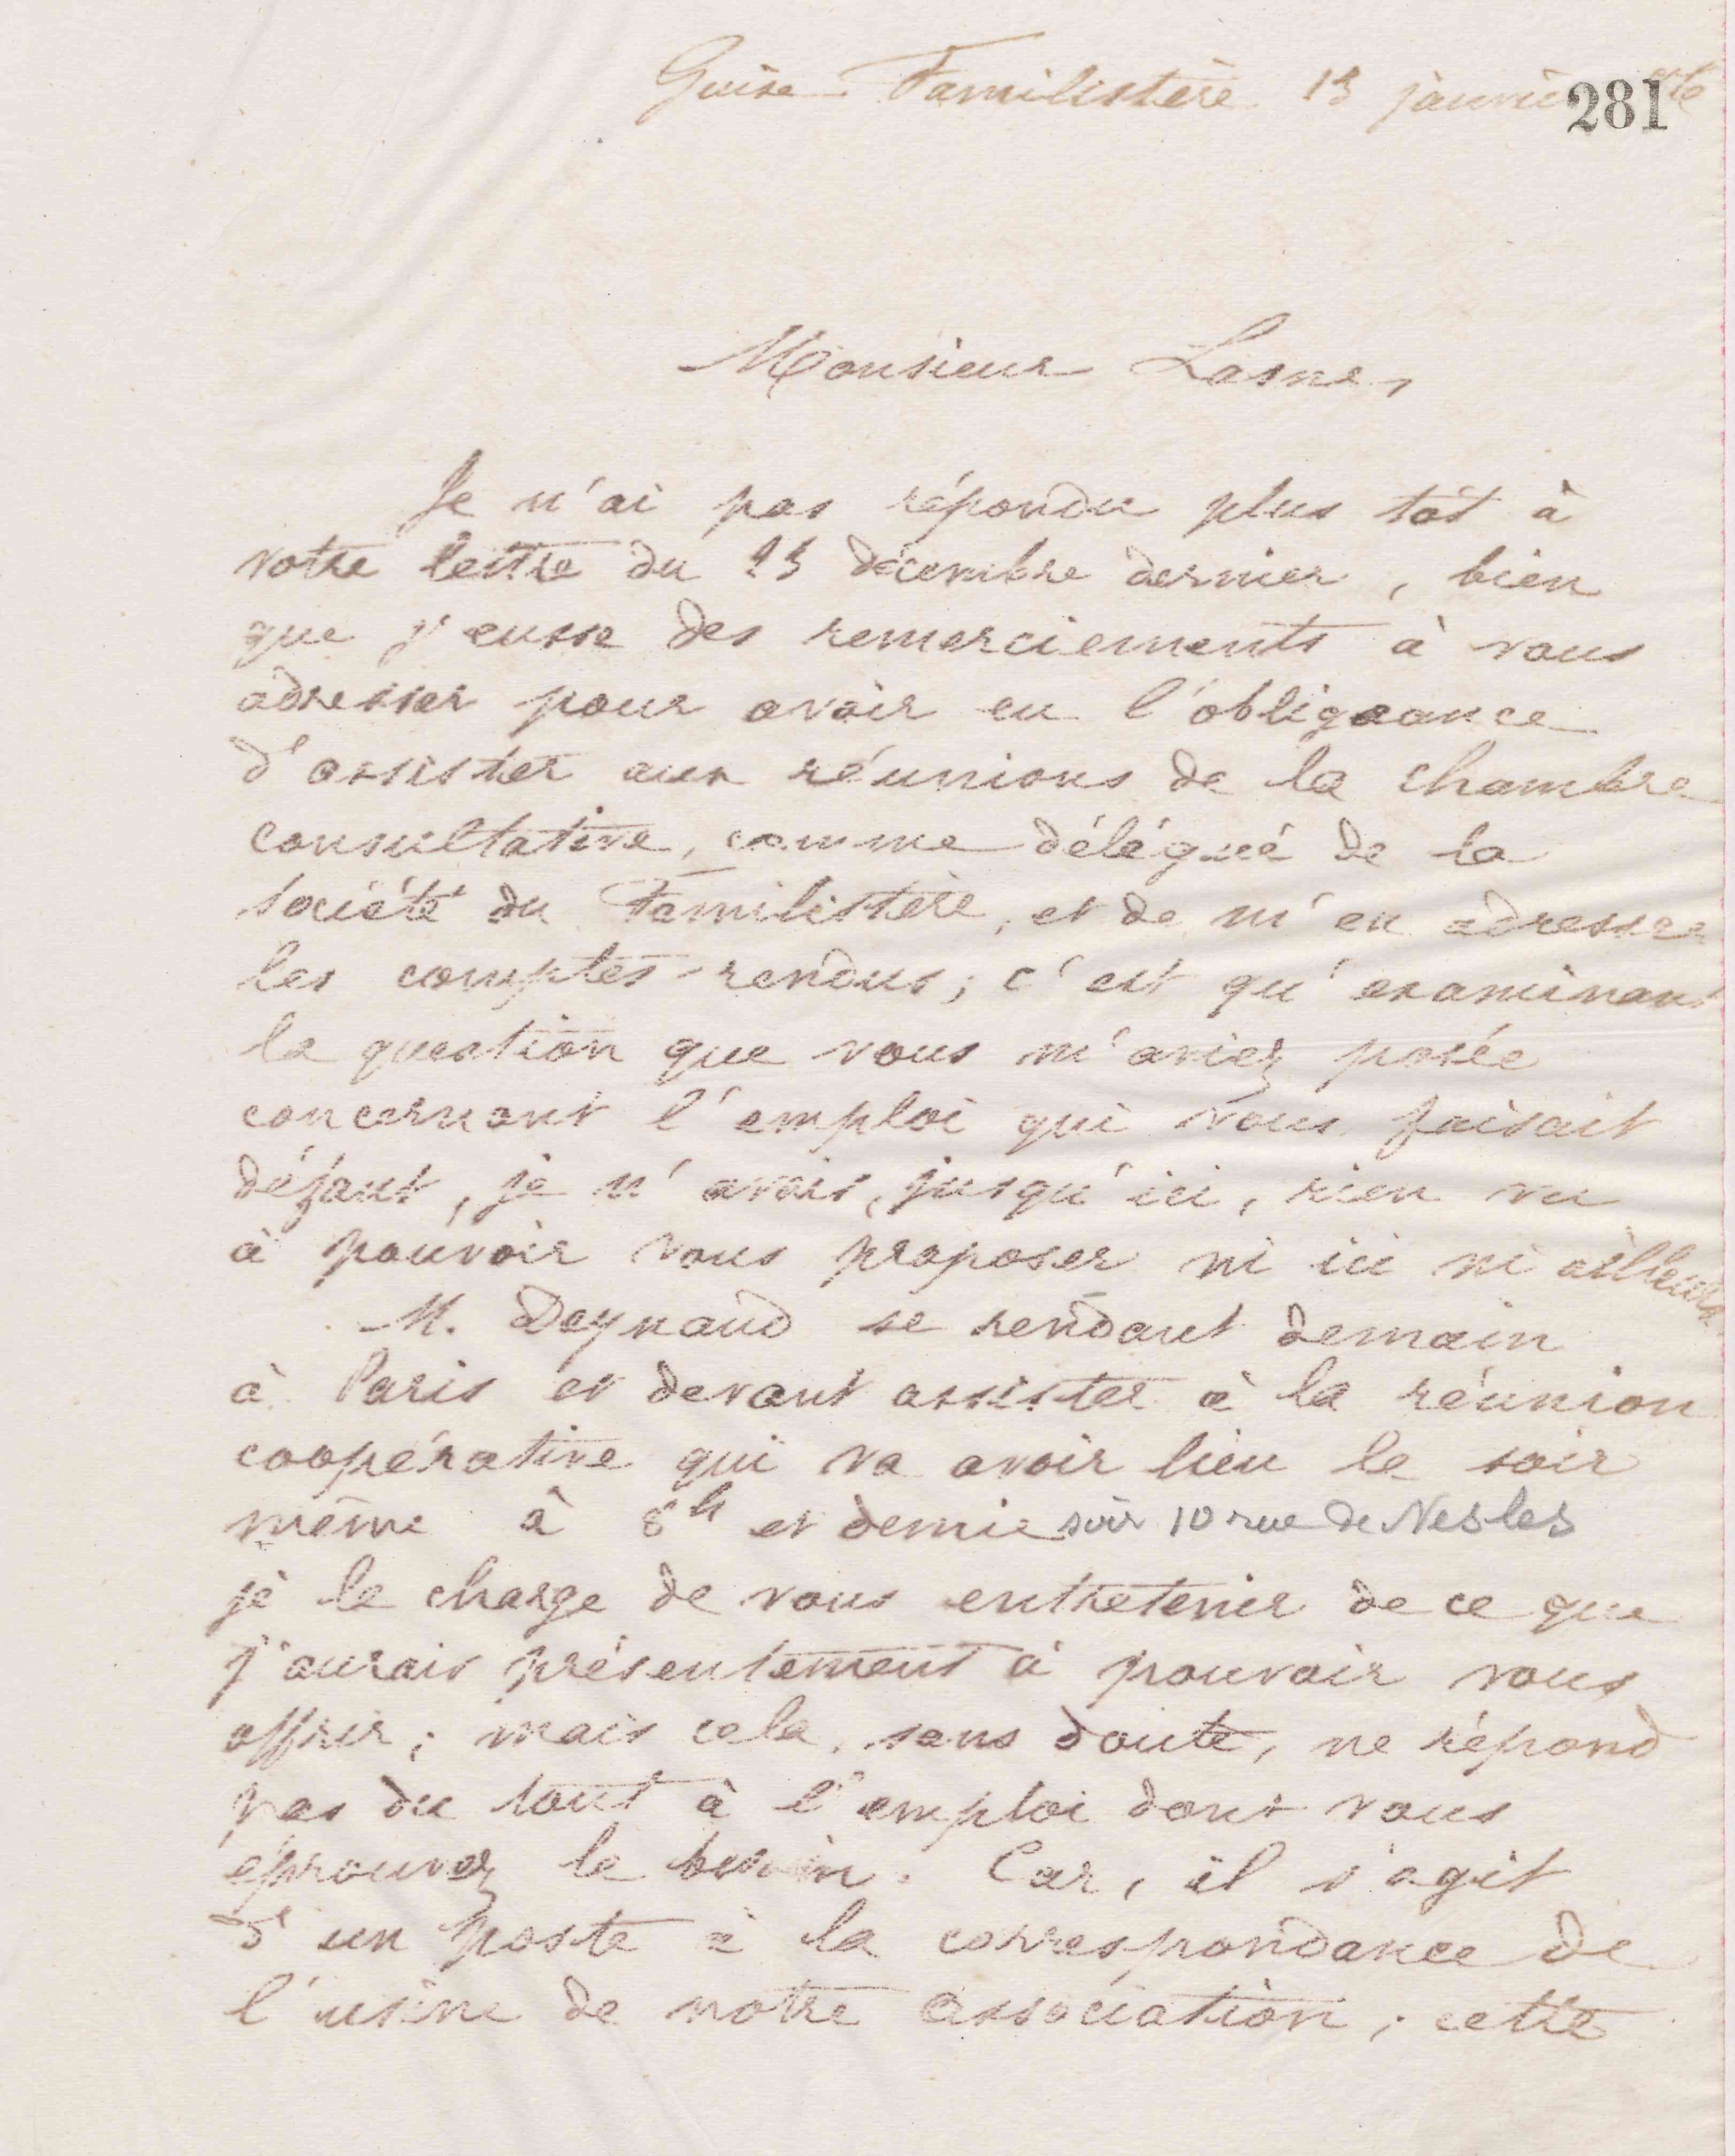 Guise Familistère 13 janvier
281
Monsieur Lasne,
Je n'ai pas répondu plus tôt à
votre lettre du 23 décembre dernier, bien
que j'eusse des remerciements à vous
adresser pour avoir eu l'obligeance
d'assister aux réunions de la chambre
consultative, comme délégué de la
société du Familistère, et de m'en adresser
les comptes-rendus; c'est qu'examinant
la question que vous m'aviez posée
concernant l'emploi qui vous faisait
défaut, je n'avais, jusqu'ici, rien vu
à pouvoir vous proposer ni ici ni ailleurs.
M. Deynaud se rendant demain
à Paris et devant assister à la réunion
coopérative qui va avoir lieu le soir
même à 8h et demie soir 10 rue de Nesles
je le charge de vous entretenir de ce que
j'aurais présentement à pouvoir vous
offrir; mais cela, sans doute, ne répond
pas du tout à l'emploi dont vous
éprouvez le besoin. Car, il s'agit
d'un poste à la correspondance de
l'usine de notre association; cette